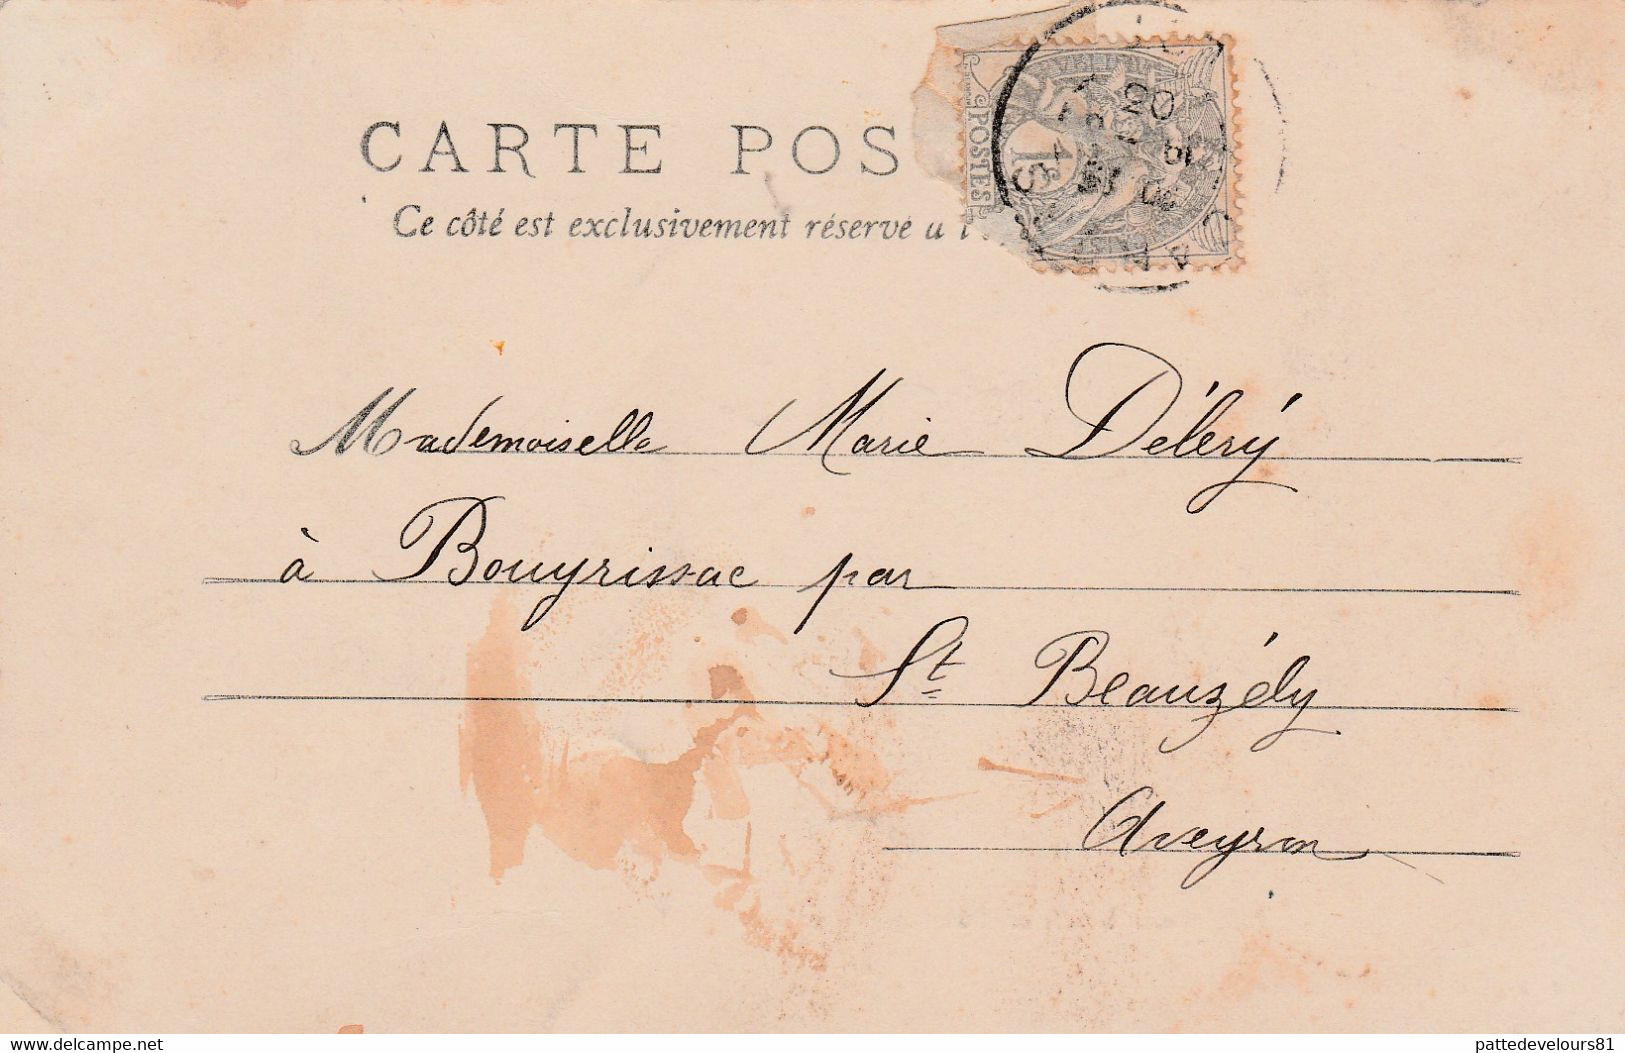 CARTE POS
Ce côté est exclusivement réservé a l
POSTES
1c
Mademoiselle Marie Délerÿ
à Bouyrissac par
St Beauzély
Aveyron
www.delcampe.net
pattedevelours81